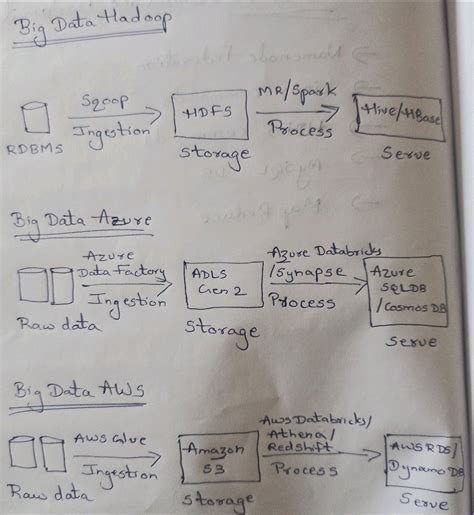 Big Data Hadoop
Sqoop
MR/Spark
HDFS
Hive/HBase
Ingestion
Process
RDBMS
Storage
Serve
Big Data Azure
Azure
Data Factory
Azure Databricks
/Synapse
ADLS
Gen 2
Azure
SQLDB
/Cosmos DB
Ingestion
Process
Raw data
Storage
Serve
Big Data AWS
AWS Glue
Aws Databricks/
Athena/
Redshift
Amazon
S3
AWS RDS/
Dynamo DB
Ingestion
Process
Raw data
Storage
Serve